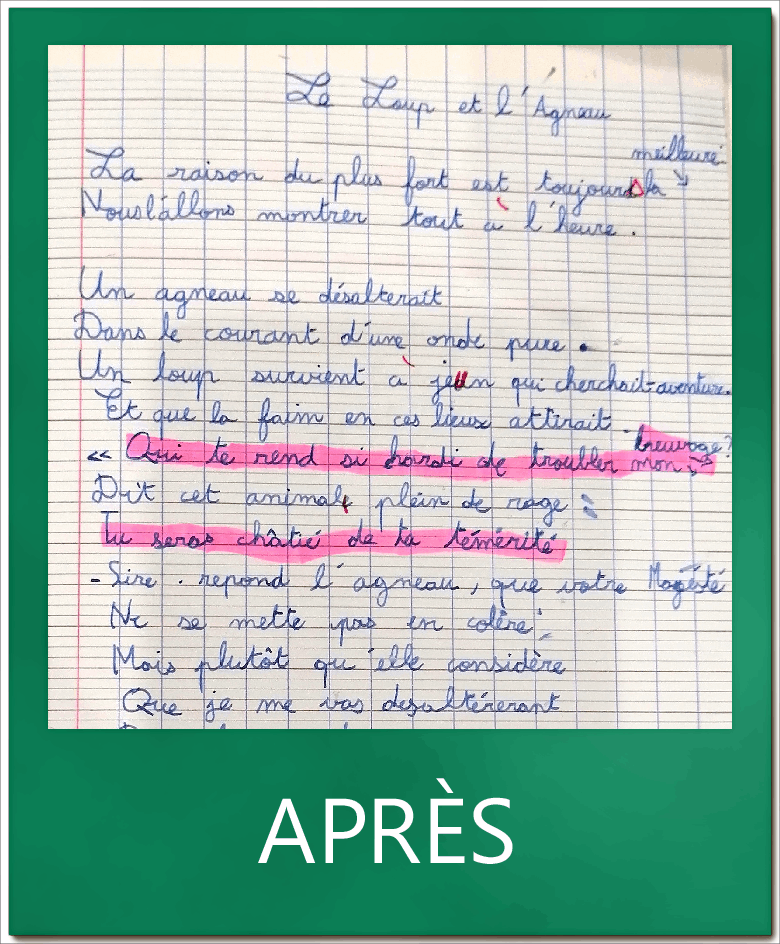 Le Loup et l'Agneau
meilleure
La raison du plus fort est toujours la
Nous l'allons montrer tout à l'heure.
Un agneau se désalterait
Dans le courant d'une onde pure.
Un loup survient à jeun qui cherchait aventure.
Et que la faim en ces lieux attirait.
breuvage?
« Qui te rend si hardi de troubler mon
Dit cet animal plein de rage :
Tu seras châtié de ta témérité
- Sire. repond l'agneau, que votre Magesté
Ne se mette pas en colère;
Mais plutôt qu'elle considère
Que je me vas desaltérerant
APRÈS